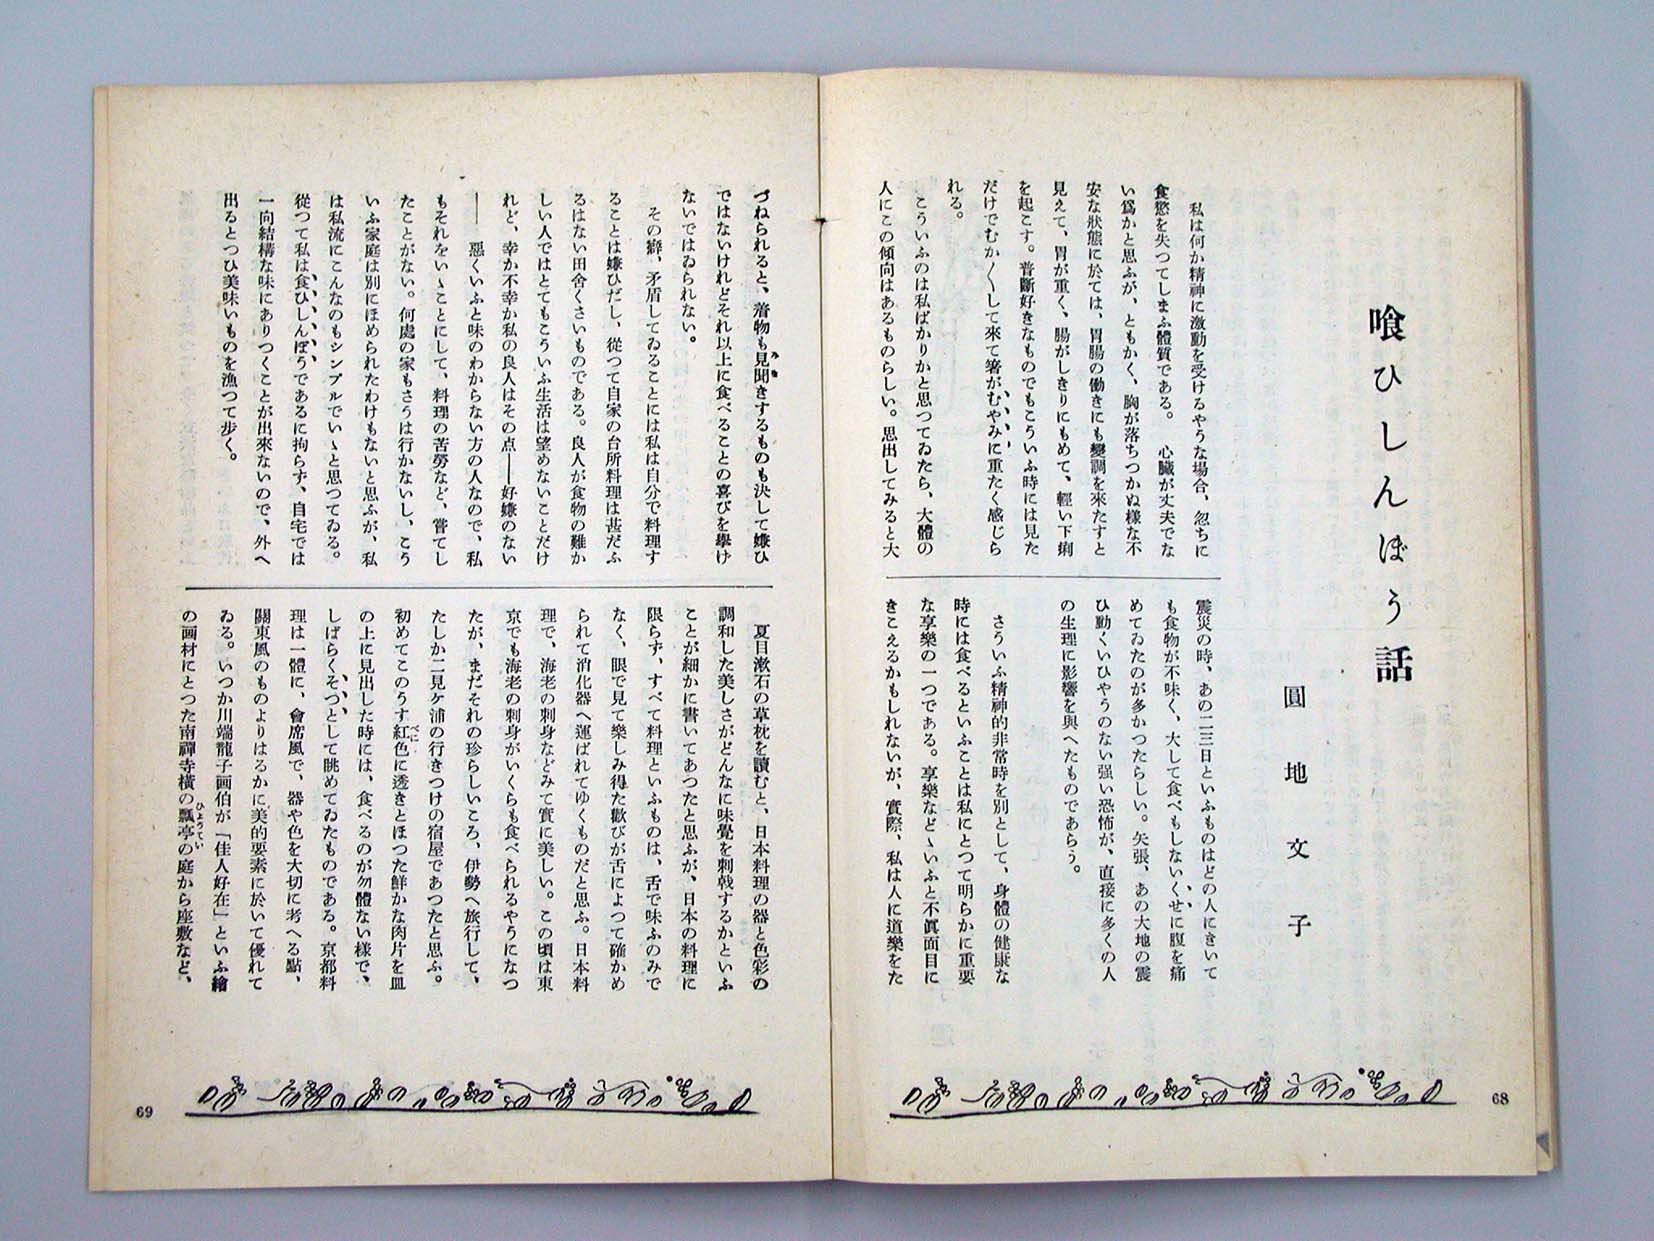 喰ひしんぼう話
圓地文子
私は何か精神に激動を受けるやうな場合、忽ちに
食慾を失つてしまふ體質である。　心臓が丈夫でな
い爲かと思ふが、ともかく、胸が落ちつかぬ樣な不
安な狀態に於ては、胃腸の働きにも變調を來たすと
見えて、胃が重く、腸がしきりにもめて、輕い下痢
を起こす。普斷好きなものでもこういふ時には見た
だけでむか〱して來て箸がむやみに重たく感じら
れる。
こういふのは私ばかりかと思つてゐたら、大體の
人にこの傾向はあるものらしい。思出してみると大
震災の時、あの二三日といふものはどの人にきいて
も食物が不味く、大して食べもしないくせに腹を痛
めてゐたのが多かつたらしい。矢張、あの大地の震
ひ動くいひやうのない强い恐怖が、直接に多くの人
の生理に影響を與へたものであらう。
さういふ精神的非常時を別として、身體の健康な
時には食べるといふことは私にとつて明らかに重要
な享樂の一つである。享樂などゝいふと不眞面目に
きこえるかもしれないが、實際、私は人に道樂をた
68
づねられると、着物も見聞きするものも決して嫌ひ
ではないけれどそれ以上に食べることの喜びを擧げ
ないではゐられない。
その癖、矛盾してゐることには私は自分で料理す
ることは嫌ひだし、從つて自家の台所料理は甚だふ
るはない田舍くさいものである。良人が食物の難か
しい人ではとてもこういふ生活は望めないことだけ
れど、幸か不幸か私の良人はその点――好嫌のない
――　惡くいふと味のわからない方の人なので、私
もそれをいゝことにして、料理の苦勞など、嘗てし
たことがない。何處の家もさうは行かないし、こう
いふ家庭は別にほめられたわけもないと思ふが、私
は私流にこんなのもシンプルでいゝと思つてゐる。
從つて私は食ひしんぼうであるに拘らず、自宅では
一向結構な味にありつくことが出來ないので、外へ
出るとつひ美味いものを漁つて步く。
夏目漱石の草枕を讀むと、日本料理の器と色彩の
調和した美しさがどんなに味覺を刺戟するかといふ
ことが細かに書いてあつたと思ふが、日本の料理に
限らず、すべて料理といふものは、舌で味ふのみで
なく、眼で見て樂しみ得た歡びが舌によつて確かめ
られて消化器へ運ばれてゆくものだと思ふ。日本料
理で、海老の刺身などみて實に美しい。この頃は東
京でも海老の刺身がいくらも食べられるやうになつ
たが、まだそれの珍らしいころ、伊勢へ旅行して、
たしか二見ケ浦の行きつけの宿屋であつたと思ふ。
初めてこのうす紅色に透きとほつた鮮かな肉片を皿
の上に見出した時には、食べるのが勿體ない樣で、
しばらくそつとして眺めてゐたものである。京都料
理は一體に、會席風で、器や色を大切に考へる點、
關東風のものよりはるかに美的要素に於いて優れて
ゐる。いつか川端龍子画伯が「佳人好在」といふ繪
の画材にとつた南禪寺橫の瓢亭の庭から座敷など、
69